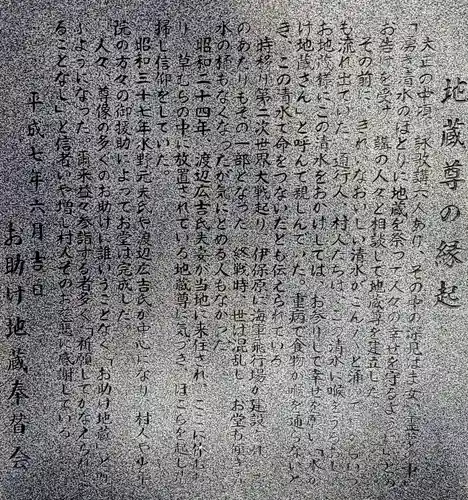 地蔵尊の縁起
大正の中頃、詠歌講六人あり、その中の
「湧き清水のほとりに地蔵を祭って人々の幸せを守るよ
お告げを受け、講の人々と相談して地蔵尊を建立した
その前に、きれいなおいしい清水がこんこんと涌
も流れ出ていた、道行人、村人たちは、この清水に喉をうるおし
お地蔵様にこの清水をおかけしては、お参りして幸せを願い「水か
け地蔵さん」と呼んで親しんでいた。重病で食物が喉を通らないと
き、この清水で命をつないだとも伝えられている
時移り第二次世界大戦起り、伊保原に海軍飛行場が建設
のあたりもその一部となった、終戦時、世は混乱し、お堂も
水の様もなくなったが気にとめる人もなかった
昭和二十四年、渡辺広吉氏夫妻が当地に来住され、ここに
り、草むらの中に放置されている地蔵尊に気づき、ほこらを起し
掃し信仰をしていた。
昭和三十七年水野元夫氏や渡辺広吉氏が中心になり、村人や
院の方々の御援助によってお堂は完成した。
人々、尊像の多くのお助けに誰いうことなく「お助け地蔵」と
ようになった、爾来益々参詣する者多く「祈願してかなえられ
ることなし」と信者いや増し村人そのお霊験に感謝している
平成七年六月吉日
お助け地蔵奉賛会